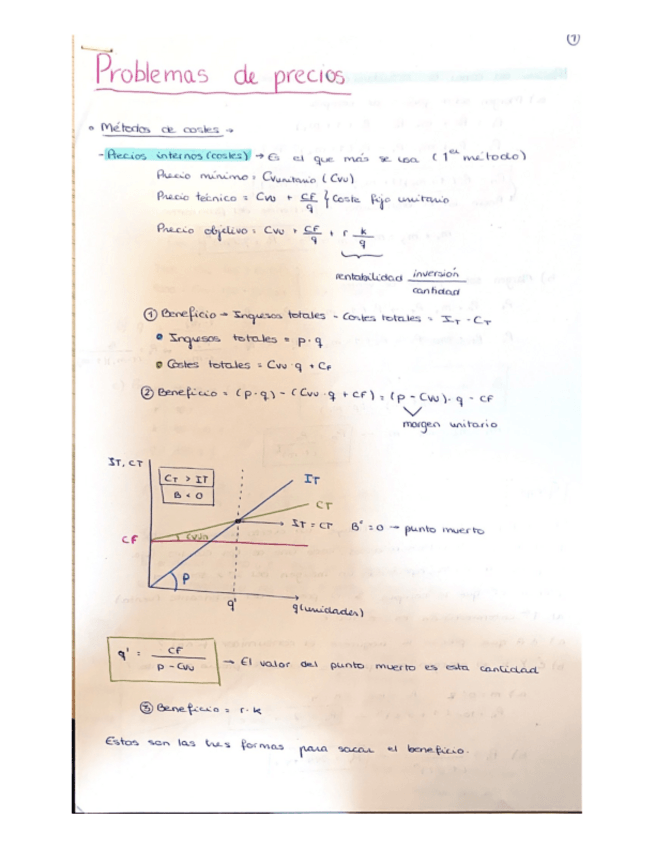 1
Problemas de precios
• Métodos de costes →
- Precios internos (costes) → Es el que más se usa (1er método)
Precio mínimo = Cvunitario (Cvu)
Precio técnico = Cvu + CF/q } Coste fijo unitario
Precio objetivo = Cvu + CF/q + r k/q
rentabilidad inversión/cantidad
① Beneficio → Ingresos totales - Costes totales = IT - CT
• Ingresos totales = p·q
• Costes totales = Cvu·q + CF
② Beneficio = (p·q) - (Cvu·q + CF) = (p - Cvu)·q - CF
margen unitario
IT, CT
CT > IT
B < 0
IT
CT
IT = CT B° = 0 → punto muerto
CF
Cvu
P
q'
q(unidades)
q' = CF / p - Cvu → El valor del punto muerto es esta cantidad
③ Beneficio = r·k
Estos son las tres formas para sacar el beneficio.